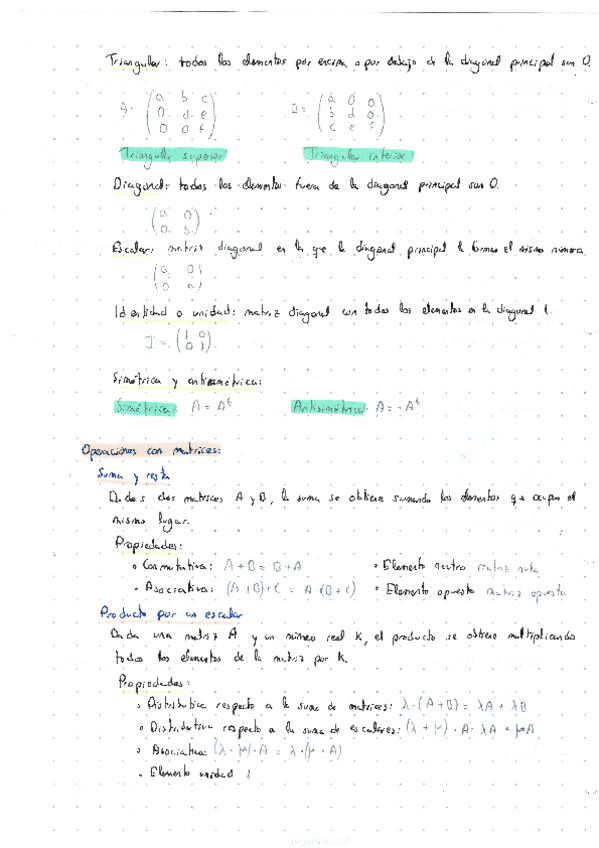 Triangular: todos los elementos por encima o por debajo de la diagonal principal son 0.
A = (a b c
0 d e
0 0 f)
B = (a 0 0
b d 0
c e f)
Triangular superior
Triangular inferior
Diagonal: todos los elementos fuera de la diagonal principal son 0.
(a 0
0 b)
Escalar: matriz diagonal en la que la diagonal principal la forma el mismo número.
(a 0
0 a)
Identidad o unidad: matriz diagonal con todos los elementos en la diagonal 1.
I = (1 0
0 1)
Simétrica y antisimétrica:
Simétrica: A = Aᵗ
Antisimétrica: A = -Aᵗ
Operaciones con matrices:
Suma y resta
Dadas dos matrices A y B, la suma se obtiene sumando los elementos que ocupan el
mismo lugar.
Propiedades:
• Conmutativa: A + B = B + A
• Elemento neutro matriz nula
• Asociativa: (A + B) + C = A + (B + C)
• Elemento opuesto matriz opuesta
Producto por un escalar
Dada una matriz A y un número real K, el producto se obtiene multiplicando
todos los elementos de la matriz por K.
Propiedades:
• Distributiva respecto a la suma de matrices: λ · (A + B) = λA + λB
• Distributiva respecto a la suma de escalares: (λ + μ) · A = λA + μA
• Asociativa: (λ · μ) · A = λ · (μ · A)
• Elemento unidad 1